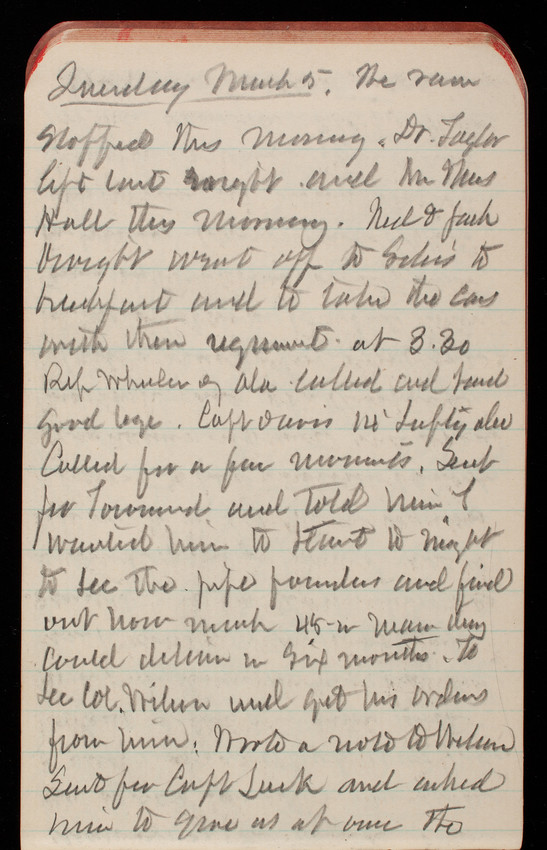 Tuesday March 5. The rain
stopped this morning. Dr. Taylor
left last night and Mr
Hall this morning. Ned & Jack
Dwight went off to to
breakfast and to take the cars
with their regiment at 3.30
Rep Wheeler of Ala called and said
good bye. Capt Davis also
Called for a few moments. Sent
for Townsend and told him I
wanted him to start to night
to see the pipe founders and find
out how much 48 in main they
could deliver in six months. To
see Col. Wilson and get his orders
from him. Wrote a note to Wilson
Sent for Capt Lusk and asked
him to give us at once the